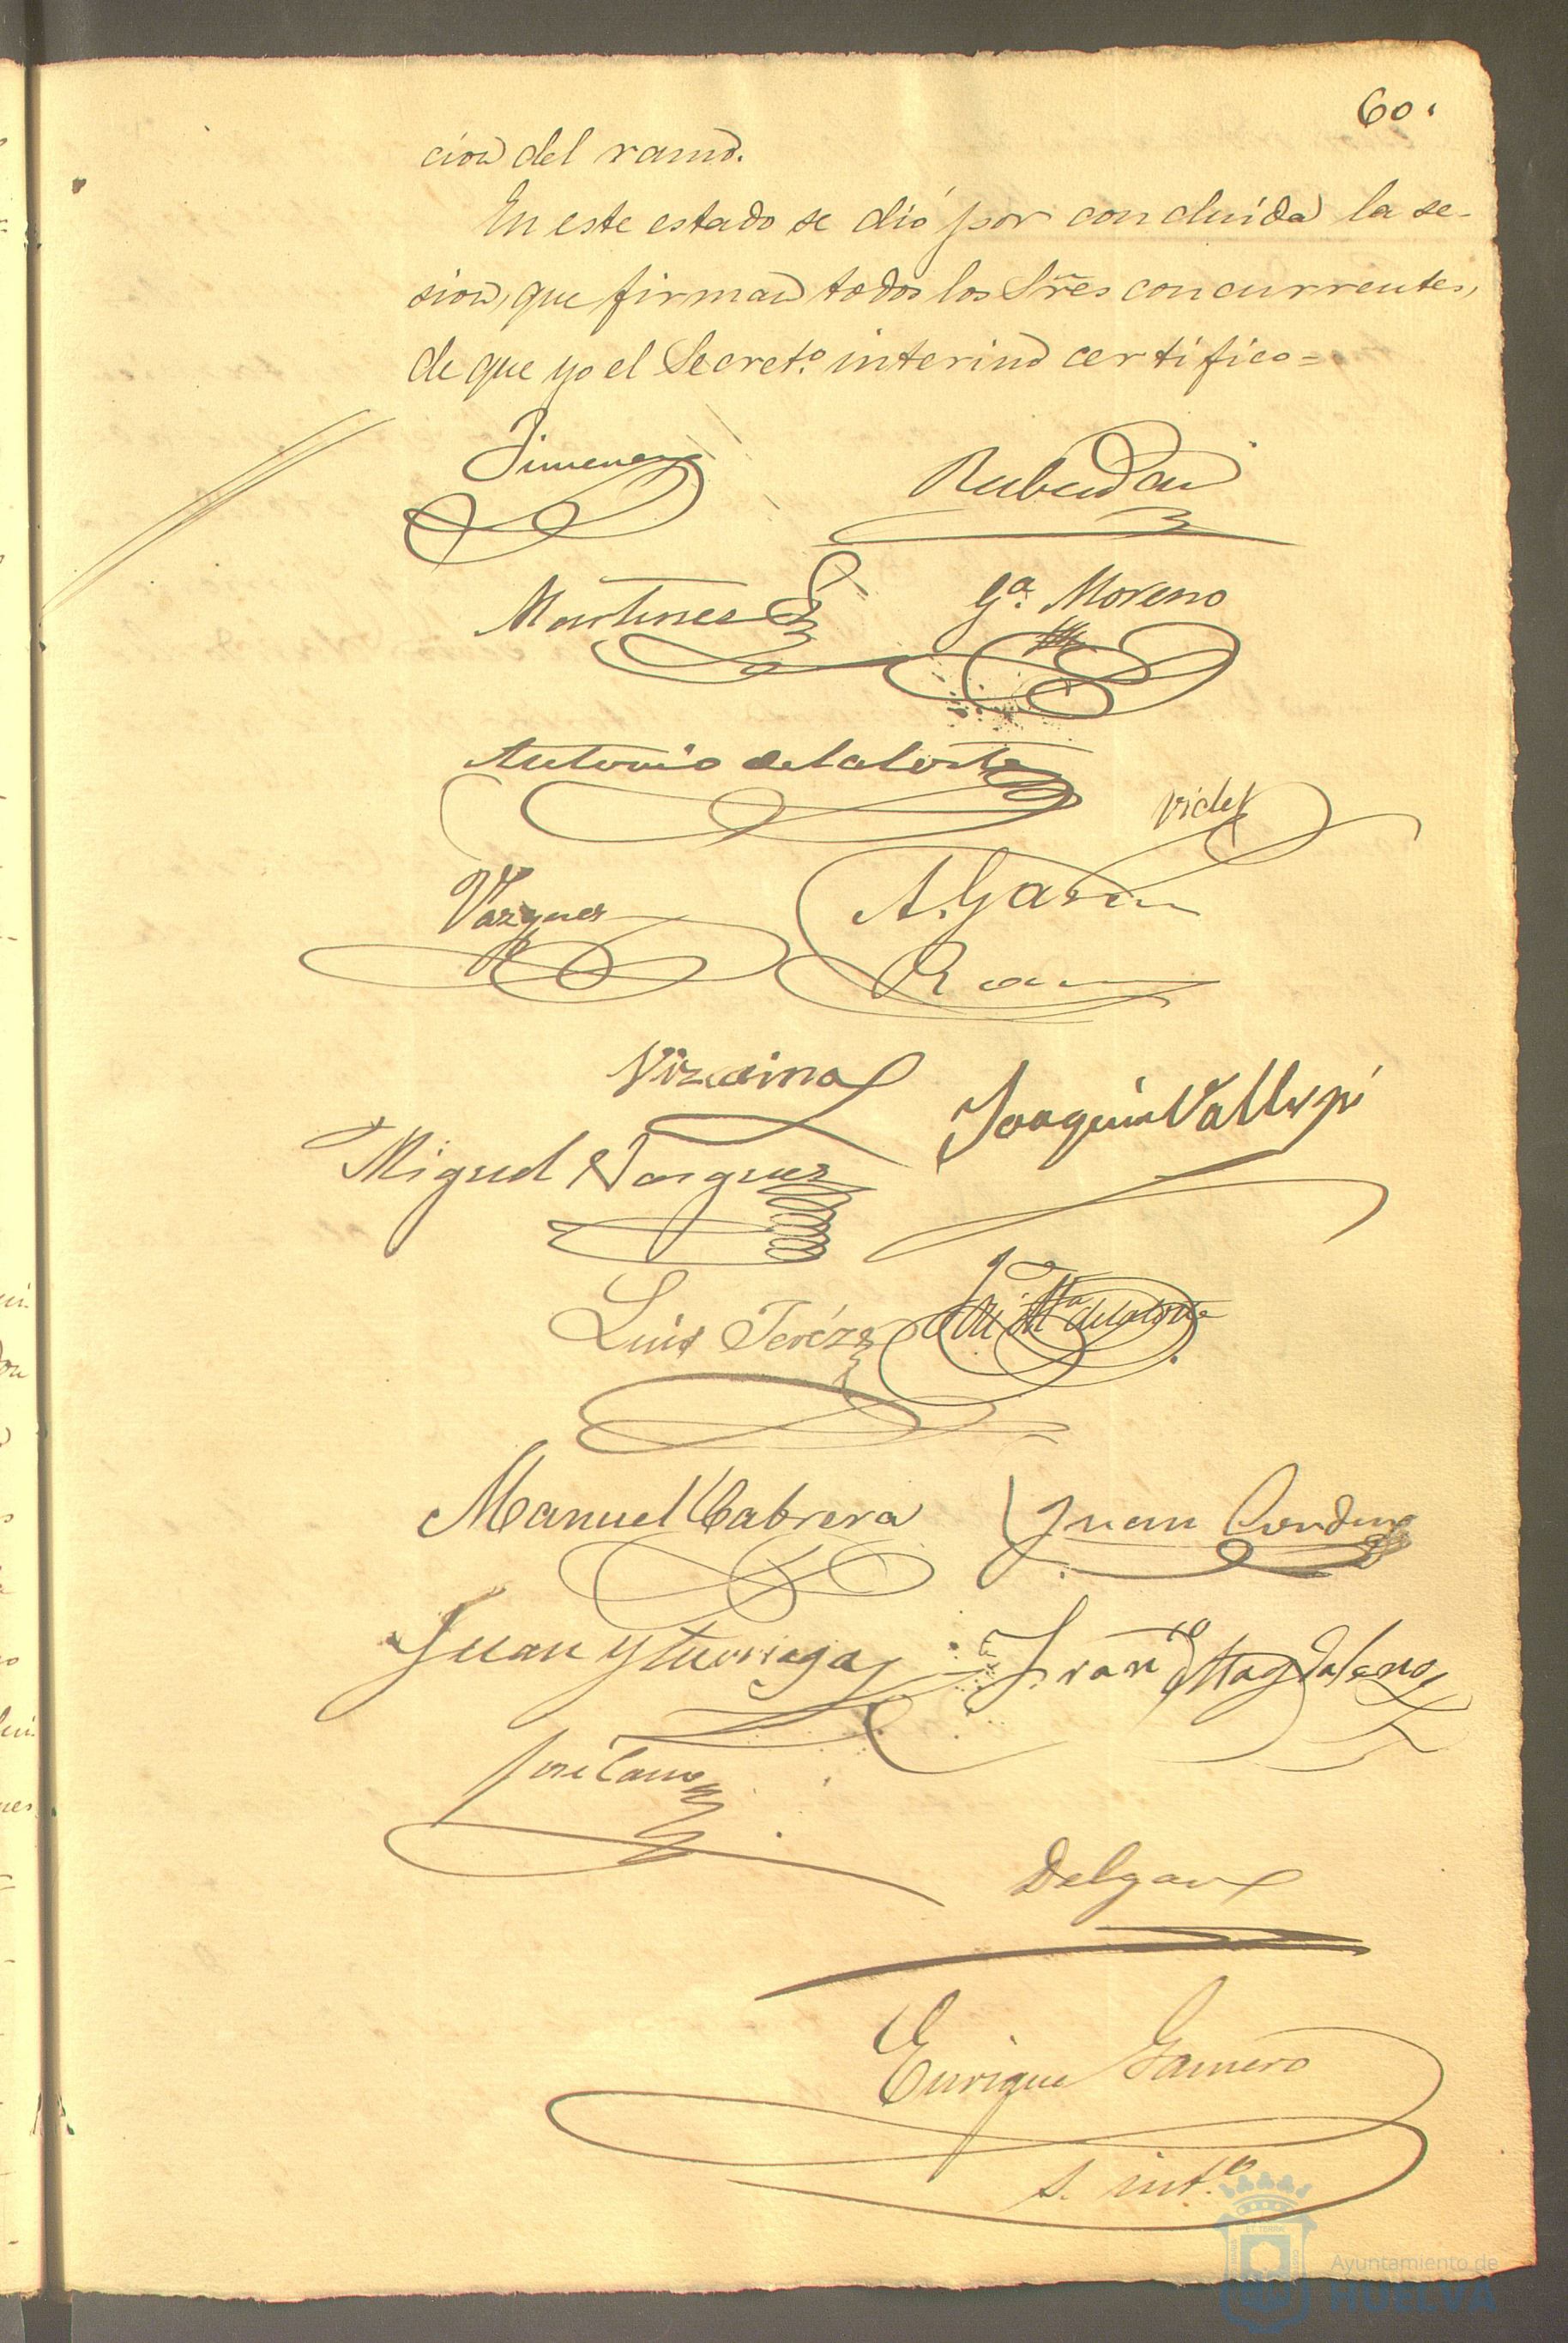 60.
cion del ramo.
En este estado se dió por concluida la se-
sion, que firman todos los Sres concurrentes,
de que yo el Secret.º interino certifico=
Jimenez
Martinez
Gª. Moreno
Antonio de la Corte
Vides
Vazquez
A. Garcia
Vizcaino
Joaquin Vallespi
Miguel Vazquez
Luis Teréze
Mª de la Corte
Manuel Cabrera
Juan
Juan Yturriaga
Franco Magdaleno
José Cano
Delgado
Enrique Gamero
S. int.º
Ayuntamiento de
HUELVA